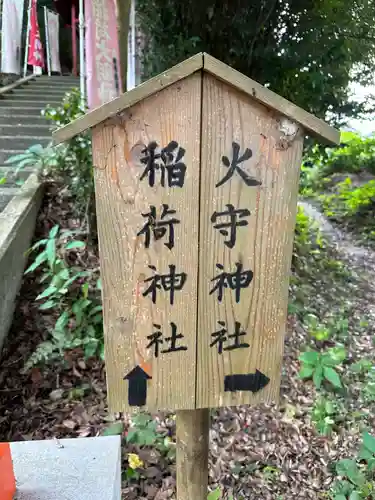 火守神社
稲荷神社